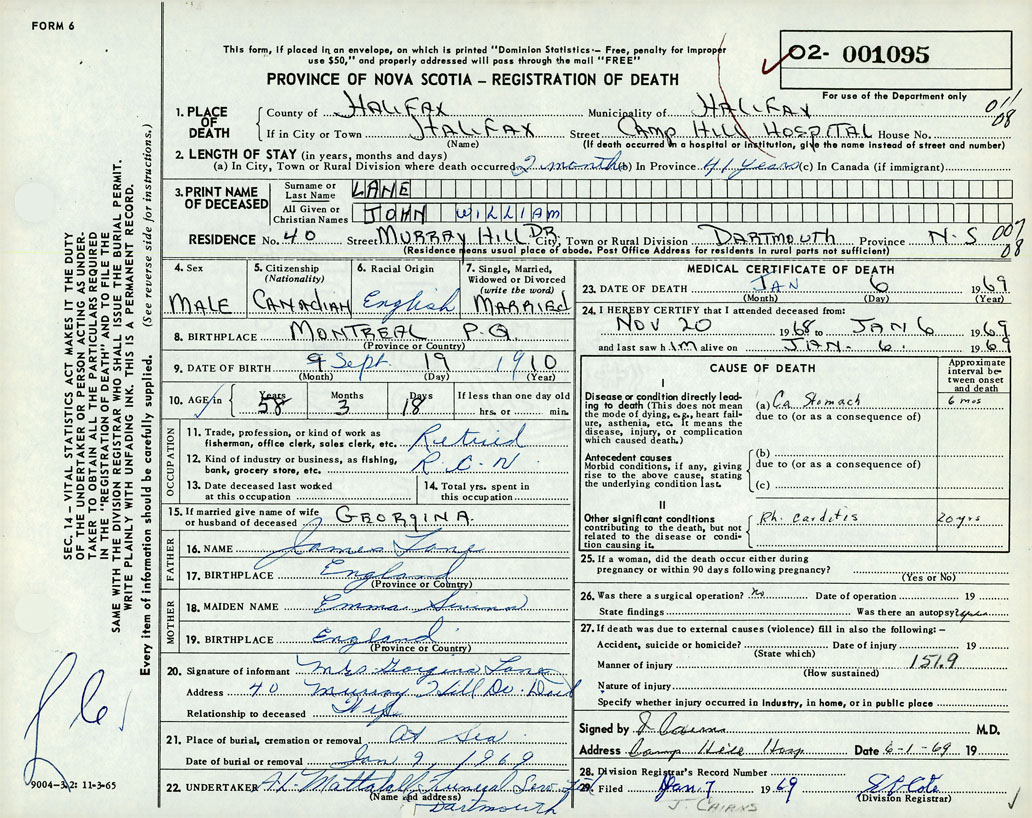 FORM 6
This form, if placed in an envelope, on which is printed "Dominion Statistics – Free, penalty for improper
use $50," and properly addressed will pass through the mail "FREE"
O2- 001095
PROVINCE OF NOVA SCOTIA – REGISTRATION OF DEATH
For use of the Department only
1. PLACE OF DEATH County of HALIFAX Municipality of HALIFAX 011 08
If in City or Town HALIFAX Street CAMP HILL HOSPITAL House No.
(Name) (If death occurred in a hospital or institution, give the name instead of street and number)
2. LENGTH OF STAY (in years, months and days)
(a) In City, Town or Rural Division where death occurred 2 months (b) In Province 41 years (c) In Canada (if immigrant)
3. PRINT NAME OF DECEASED Surname or Last Name LANE
All Given or Christian Names JOHN WILLIAM
RESIDENCE No. 40 Street MURRAY HILL DR. City, Town or Rural Division DARTMOUTH Province N.S 007 08
(Residence means usual place of abode. Post Office Address for residents in rural parts not sufficient)
4. Sex MALE
5. Citizenship (Nationality) CANADIAN
6. Racial Origin English
7. Single, Married, Widowed or Divorced (write the word) MARRIED
8. BIRTHPLACE MONTREAL P.Q.
(Province or Country)
9. DATE OF BIRTH 9 Sept. 19 1910
(Month) (Day) (Year)
10. AGE in Years 58 Months 3 Days 18 If less than one day old hrs. or min.
OCCUPATION
11. Trade, profession, or kind of work as fisherman, office clerk, sales clerk, etc. Retired
12. Kind of industry or business, as fishing, bank, grocery store, etc. R.C.N.
13. Date deceased last worked at this occupation
14. Total yrs. spent in this occupation
15. If married give name of wife or husband of deceased GEORGINA.
FATHER
16. NAME James Lane
17. BIRTHPLACE England
(Province or Country)
MOTHER
18. MAIDEN NAME Emma
19. BIRTHPLACE England
(Province or Country)
20. Signature of informant Mrs Georgina Lane
Address 40 Murray Hill Dr.
Relationship to deceased Wife
21. Place of burial, cremation or removal At Sea
Date of burial or removal Jan 9, 1969
22. UNDERTAKER Mattatall Funeral
(Name and address) Dartmouth
MEDICAL CERTIFICATE OF DEATH
23. DATE OF DEATH JAN 6 1969
(Month) (Day) (Year)
24. I HEREBY CERTIFY that I attended deceased from:
NOV 20 1968 to JAN 6 1969
and last saw him alive on JAN. 6. 1969
CAUSE OF DEATH
Approximate interval between onset and death
I
Disease or condition directly leading to death (This does not mean the mode of dying, e.g., heart failure, asthenia, etc. It means the disease, injury, or complication which caused death.)
(a) Ca Stomach 6 mos
due to (or as a consequence of)
Antecedent causes
Morbid conditions, if any, giving rise to the above cause, stating the underlying condition last.
(b)
due to (or as a consequence of)
(c)
II
Other significant conditions contributing to the death, but not related to the disease or condition causing it.
Rh. carditis 20 yrs
25. If a woman, did the death occur either during pregnancy or within 90 days following pregnancy?
(Yes or No)
26. Was there a surgical operation? No Date of operation 19
State findings Was there an autopsy?
27. If death was due to external causes (violence) fill in also the following: –
Accident, suicide or homicide? Date of injury 19
(State which)
Manner of injury 151.9
(How sustained)
Nature of injury
Specify whether injury occurred in industry, in home, or in public place
Signed by J Cairns M.D.
Address Camp Hill Hosp Date 6-1-69 19
28. Division Registrar's Record Number
29. Filed Jan. 7 1969
(Division Registrar)
J. CAIRNS
SEC. 14 – VITAL STATISTICS ACT MAKES IT THE DUTY
OF THE UNDERTAKER OR PERSON ACTING AS UNDER-
TAKER TO OBTAIN ALL THE PARTICULARS REQUIRED
IN THE "REGISTRATION OF DEATH" AND TO FILE THE
SAME WITH THE DIVISION REGISTRAR WHO SHALL ISSUE THE BURIAL PERMIT.
WRITE PLAINLY WITH UNFADING INK. THIS IS A PERMANENT RECORD.
Every item of information should be carefully supplied. (See reverse side for instructions.)
9004-3.2: 11-3-65